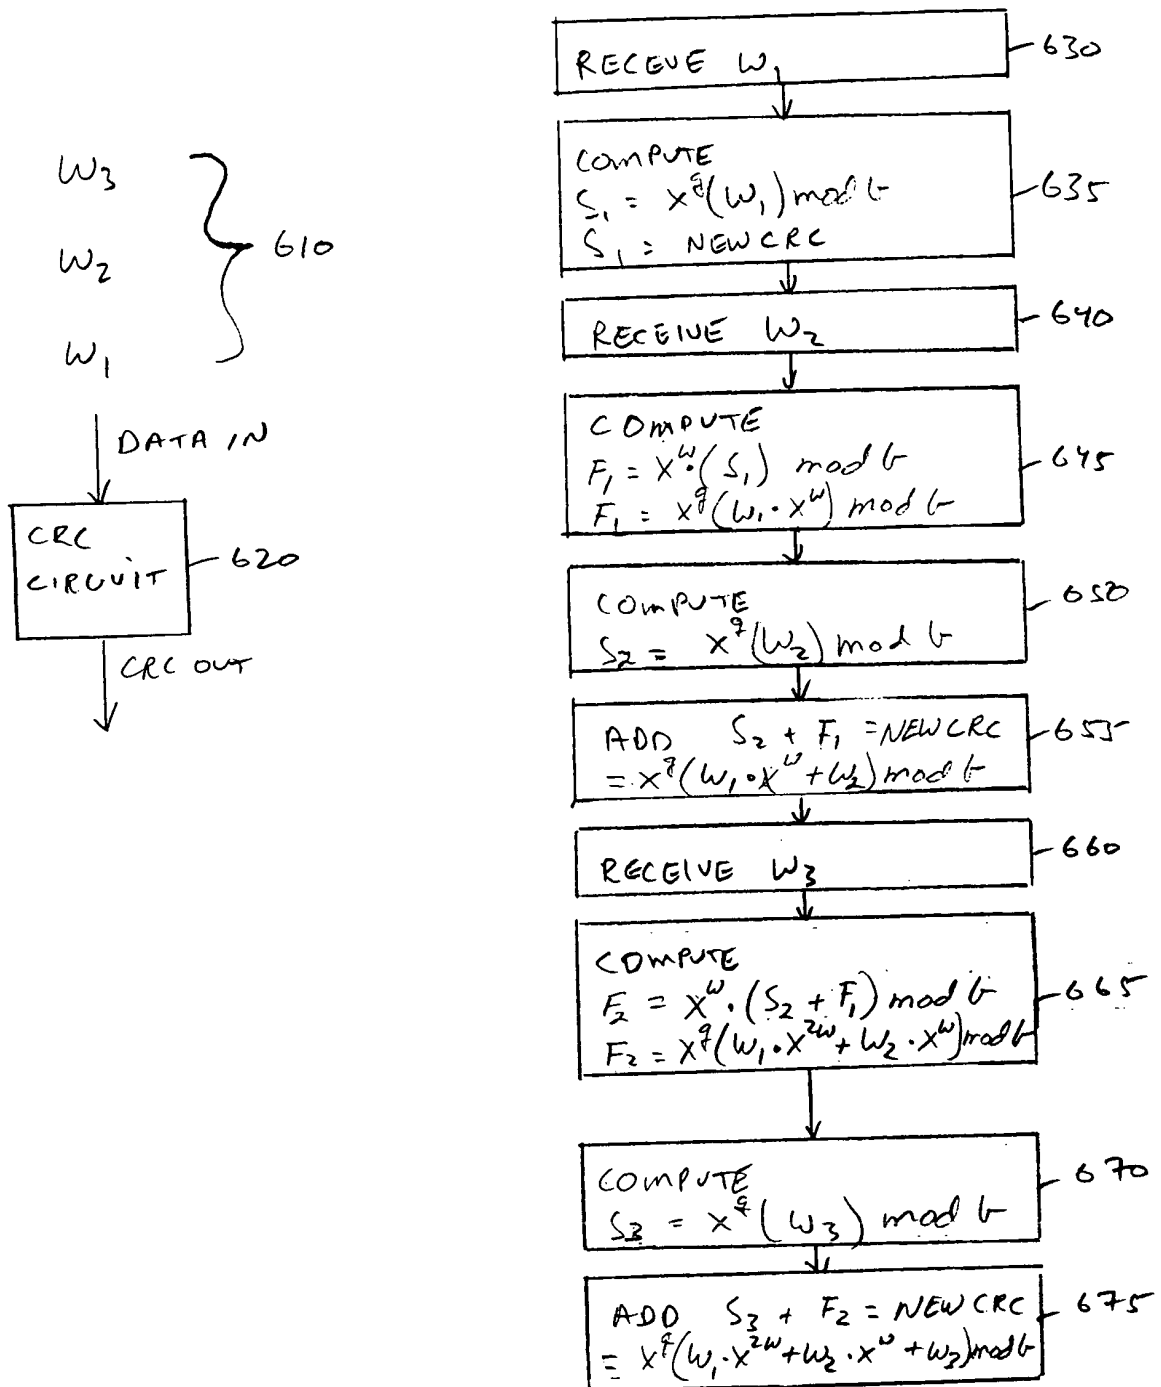 W3
W2
W1
610
DATA IN
CRC
CIRCUIT
620
CRC OUT
RECEVE W1
630
COMPUTE
S1 = X^g(W1) mod G
S1 = NEWCRC
635
RECEIVE W2
640
COMPUTE
F1 = X^W·(S1) mod G
F1 = X^g(W1·X^W) mod G
645
COMPUTE
S2 = X^g(W2) mod G
650
ADD S2 + F1 = NEWCRC
= X^g(W1·X^W + W2) mod G
655
RECEIVE W3
660
COMPUTE
F2 = X^W·(S2 + F1) mod G
F2 = X^g(W1·X^2W + W2·X^W) mod G
665
COMPUTE
S3 = X^g(W3) mod G
670
ADD S3 + F2 = NEWCRC
= X^g(W1·X^2W + W2·X^W + W3) mod G
675